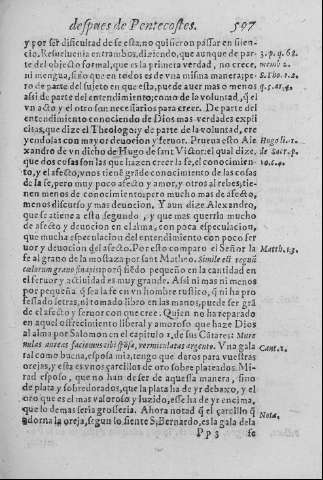 despues de Pentecostes. 597
y por ser dificultad de fe esta, no quisieron passar en silen-
cio. Resueluenla entrambos, diziendo, que aunque de par- 3. p. q. 62.
te del objecto formal, que es la primera verdad, no crece, memb. 2.
ni mengua, sino que en todos es de vna misma manera; pe- S. Tho. 2. 2.
ro de parte del sujeto en que esta, puede auer mas o menos q. 5. ar. 4.
assi de parte del entendimiento, como de la voluntad, q̃ el
vn acto y el otro son necessarios para creer. De parte del
entendimiento conociendo de Dios mas verdades expli
citas, que dize el Theologo; y de parte de la voluntad, cre
yendolas con mayor deuocion y feruor. Prueua esto Ale Hugo li. 1.
xandro de vn dicho de Hugo de sant Victor: el qual dize, de Sacr. p.
que dos cosas son las que hazen crecer la fe, el conocimien- 10. c. 4.
to, y el afecto, vnos tiene grãde conocimiento de las cosas
de la fe, pero muy poco afecto y amor, y otros al rebes, tie-
nen menos de conocimiento, pero mucho mas de afecto,
menos discurso y mas deuocion. Y aun dize Alexandro,
que se atiene a esta segundo, y que mas querria mucho
de afecto y deuocion en el alma, con poca especulacion,
que mucha especulacion del entendimiento con poco fer
uor y deuocion del afecto. Por esso comparò el Señor la Matth. 13.
fe al grano de la mostaza por sant Matheo. Simile est regnũ
cælorum grano sinapis porq̃ siẽdo pequeño en la cantidad en
el feruor y actiuidad es muy grande. Assi ni mas ni menos
por pequeña q̃ sea la fe en vn hombre rustico, q̃ ni ha pro
fessado letras, ni tomado libro en las manos, puede ser grã
de el afecto y feruor con que cree. Quien no ha reparado
en aquel ofrecimiento liberal y amoroso que haze Dios
al alma por Salomon en el capitulo 1. de sus Cãtares: Mure
nulas aureas faciemus tibi spõsa, vermiculatas argento. Vna gala Cant. 1.
tal como buena, esposa mia, tengo que daros para vuestras
orejas, y esta es vnos çarcillos de oro sobre plateados. Mi-
rad esposo, que no han de ser de aquessa manera, sino
de plata y sobredorados, que la plata ha de yr debaxo, y el
oro que es el mas valoroso y luzido, esse ha de yr encima,
que lo demas seria grosseria. Ahora notad q̃ el çarcillo q̃ Nota.
adorna la oreja, segun lo siente S. Bernardo, es la gala dela
P p 3 fe